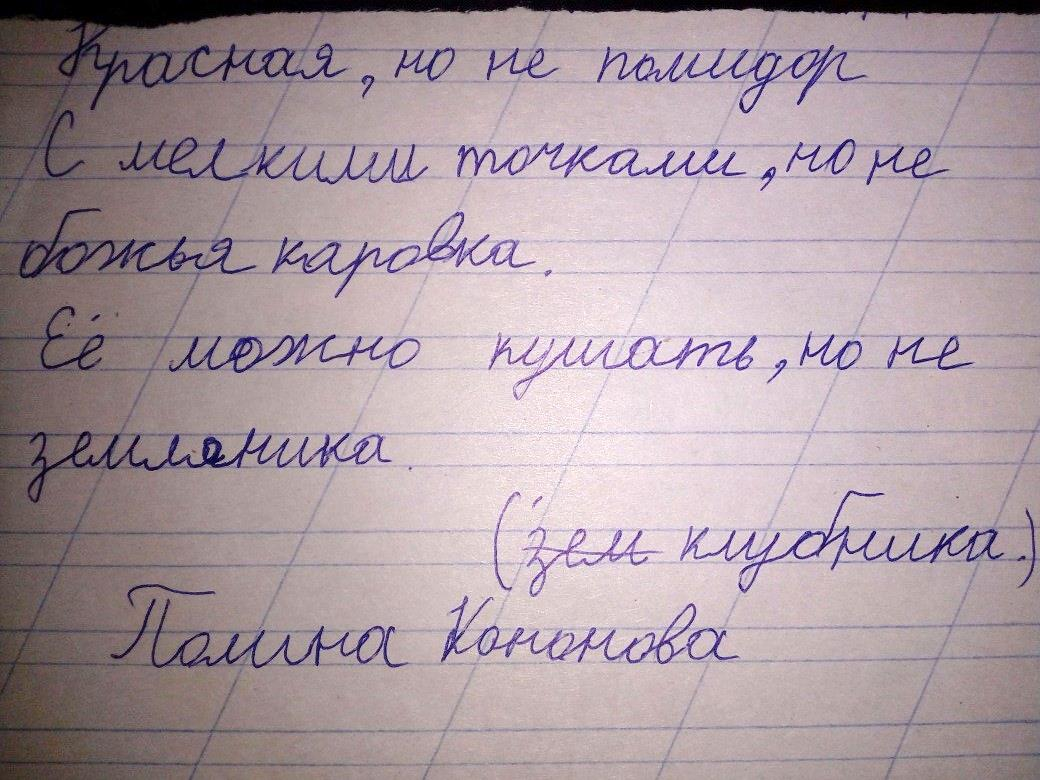 Красная, но не помидор
С мелкими точками, но не
божья каровка.
Её можно кушать, но не
земляника.
(зем клубника.)
Полина Кононова